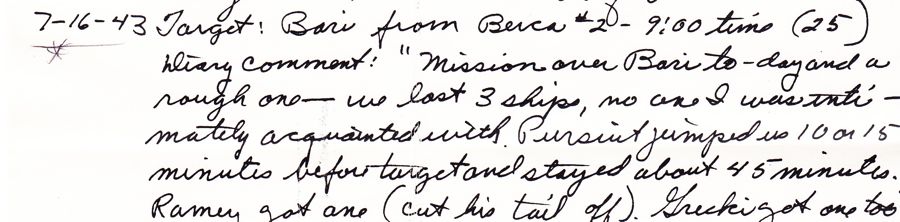 7-16-43 Target: Bari from Berca #2 - 9:00 time (25)
Diary comment: "Mission over Bari to-day and a
rough one — we lost 3 ships, no one I was inti-
mately acquainted with. Pursuit jumped us 10 or 15
minutes before target and stayed about 45 minutes.
Ramey got one (cut his tail off). Grecki got one too